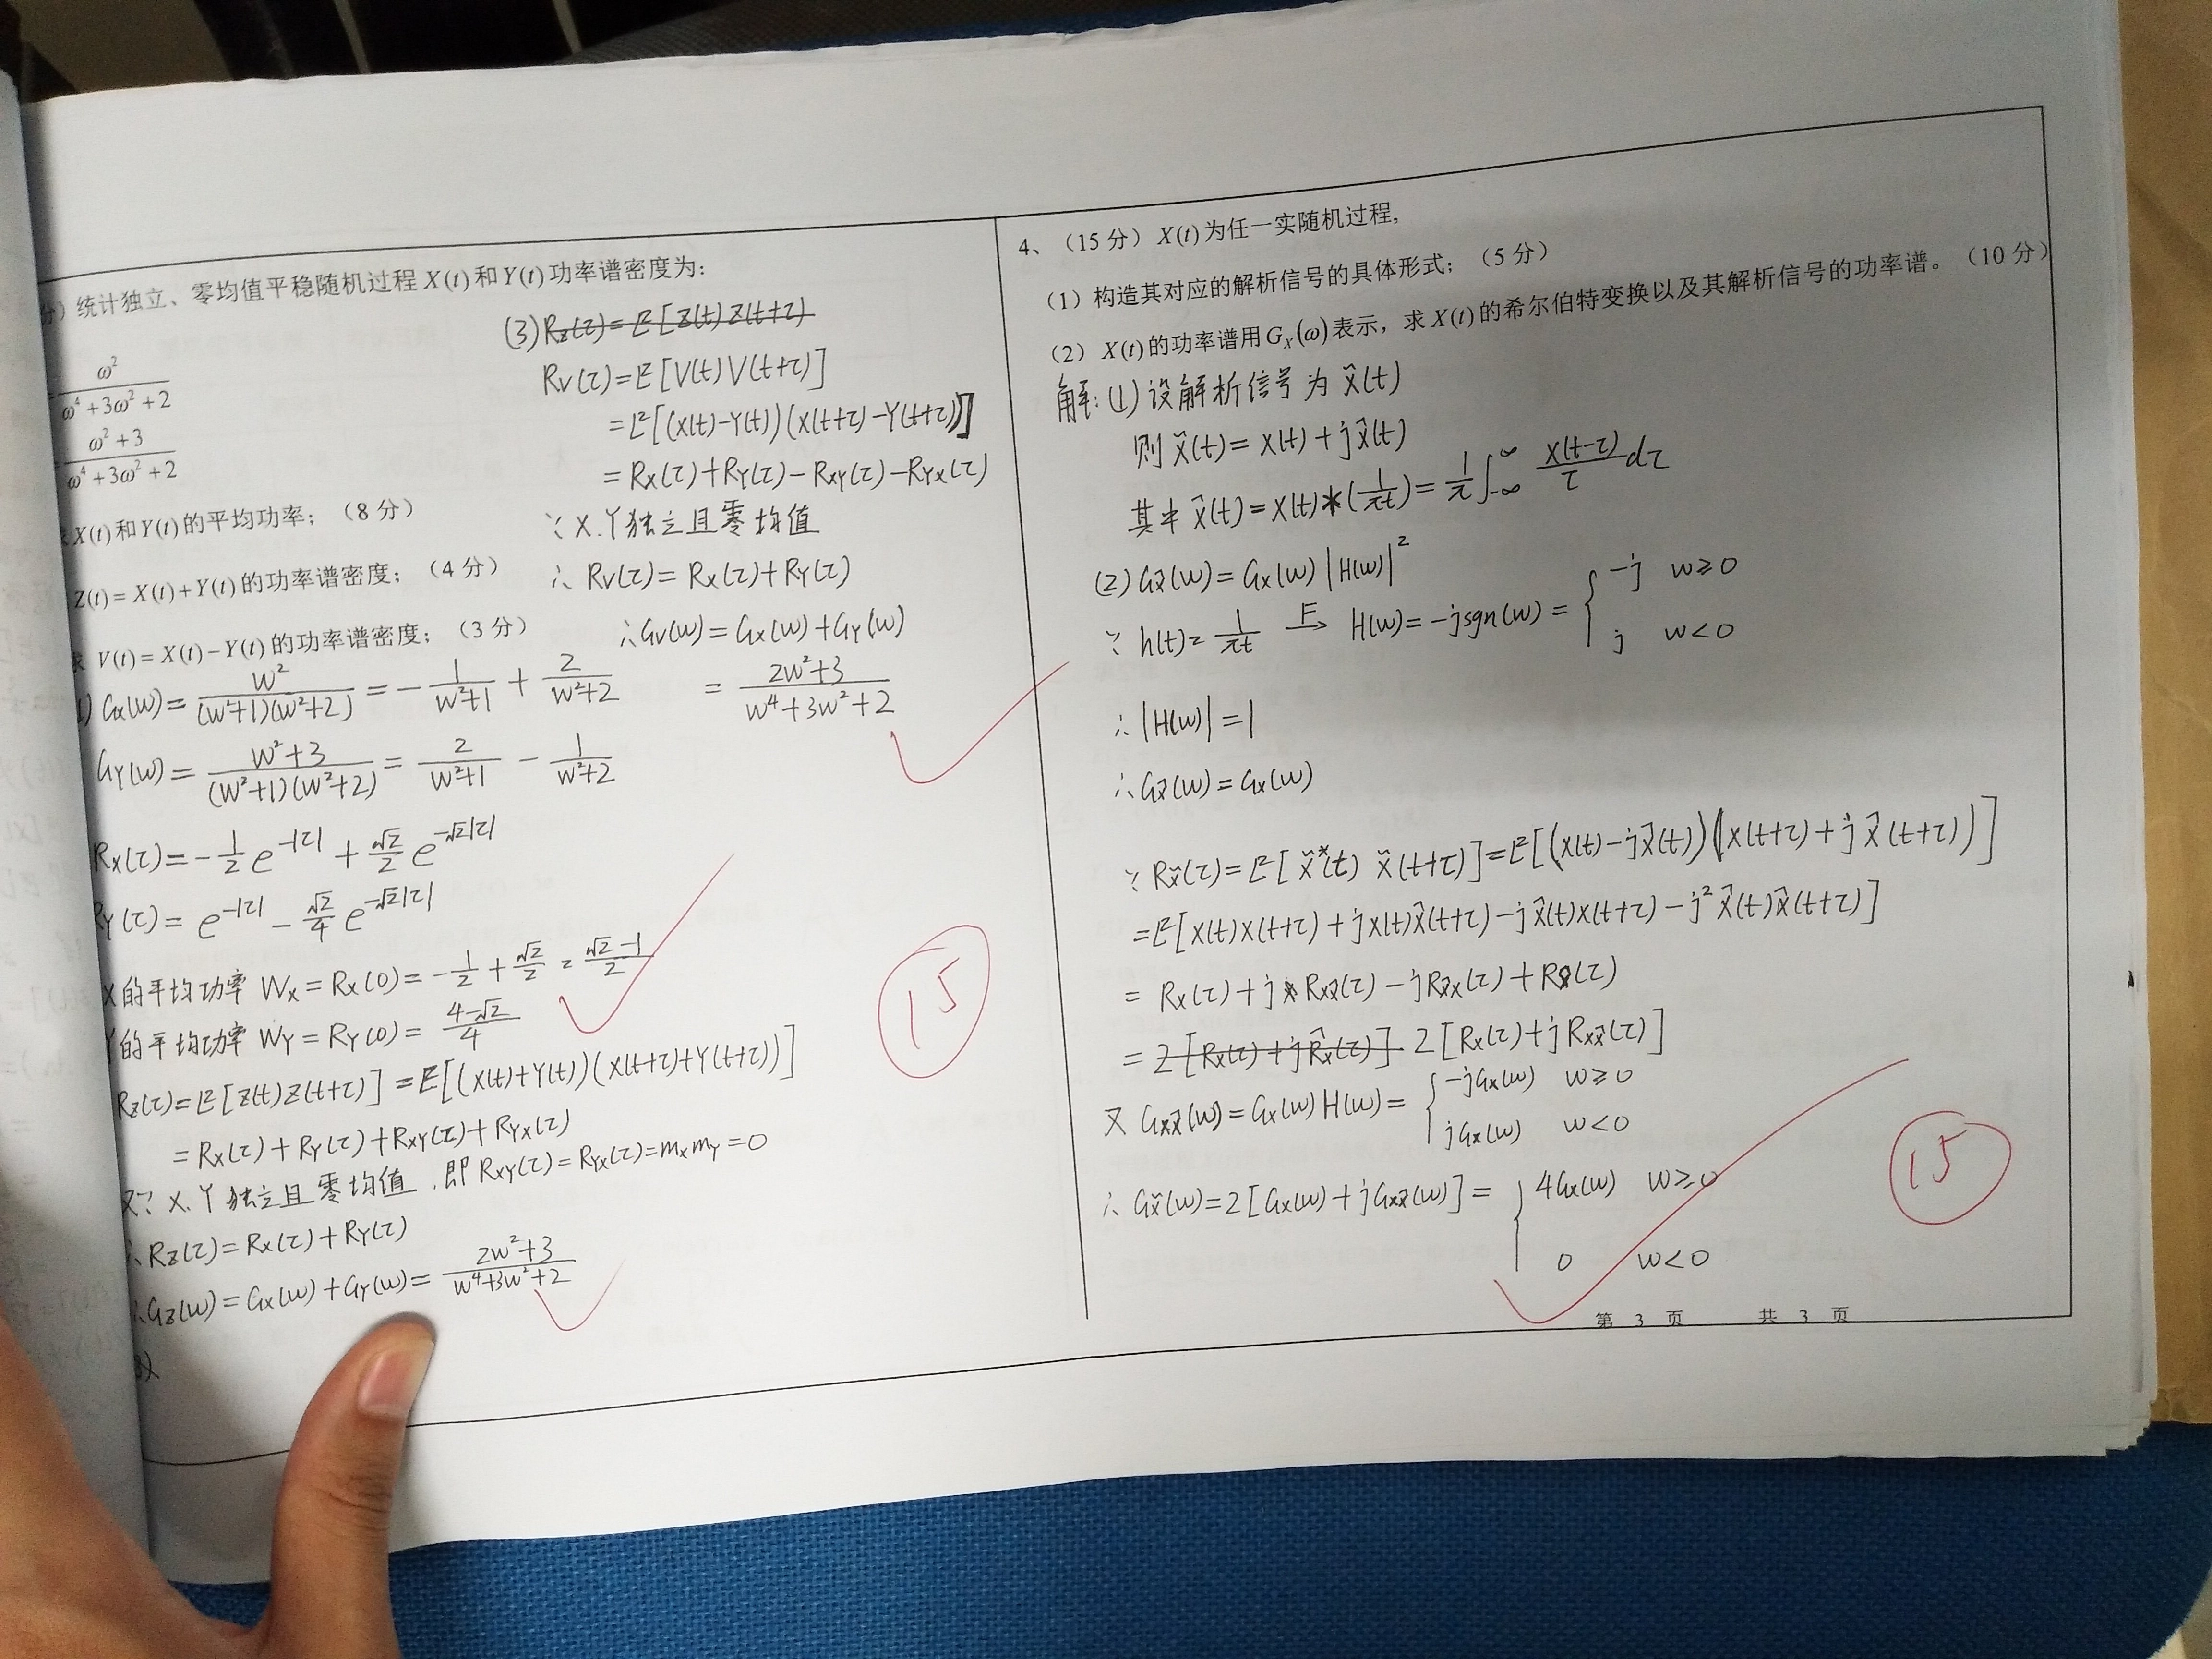 分）统计独立、零均值平稳随机过程X(t)和Y(t)功率谱密度为：
ω²/(ω⁴+3ω²+2)
(ω²+3)/(ω⁴+3ω²+2)
X(t)和Y(t)的平均功率；（8分）
Z(t)=X(t)+Y(t)的功率谱密度；（4分）
求 V(t)=X(t)-Y(t)的功率谱密度；（3分）
1) Gx(w)= w²/((w²+1)(w²+2)) = -1/(w²+1) + 2/(w²+2)
GY(w)= (w²+3)/((w²+1)(w²+2)) = 2/(w²+1) - 1/(w²+2)
Rx(τ)= -1/2 e^(-|τ|) + √2/2 e^(-√2|τ|)
RY(τ)= e^(-|τ|) - √2/4 e^(-√2|τ|)
X的平均功率 Wx=Rx(0)= -1/2 + √2/2 = (√2-1)/2
Y的平均功率 WY=RY(0)= (4-√2)/4
Rz(τ)=E[Z(t)Z(t+τ)]=E[(X(t)+Y(t))(X(t+τ)+Y(t+τ))]
=Rx(τ)+RY(τ)+RXY(τ)+RYX(τ)
又∵X、Y独立且零均值，即RXY(τ)=RYX(τ)=mxmy=0
∴Rz(τ)=Rx(τ)+RY(τ)
∴Gz(w)=Gx(w)+GY(w)= (2w²+3)/(w⁴+3w²+2)
(3)Rz(τ)=E[Z(t)Z(t+τ)
RV(τ)=E[V(t)V(t+τ)]
=E[(X(t)-Y(t))(X(t+τ)-Y(t+τ))]
=Rx(τ)+RY(τ)-RXY(τ)-RYX(τ)
∵X、Y独立且零均值
∴RV(τ)=Rx(τ)+RY(τ)
∴GV(w)=Gx(w)+GY(w)
= (2w²+3)/(w⁴+3w²+2)
15
4、（15分）X(t)为任一实随机过程,
（1）构造其对应的解析信号的具体形式；（5分）
（2）X(t)的功率谱用Gx(ω)表示，求X(t)的希尔伯特变换以及其解析信号的功率谱。（10分）
解：(1)设解析信号为 x̃(t)
则 x̃(t)=X(t)+jx̂(t)
其中 x̂(t)=X(t)*(1/πt)= 1/π ∫_{-∞}^{∞} X(t-τ)/τ dτ
(2)Gx̂(w)=Gx(w)|H(w)|²
∵h(t)= 1/πt —F→ H(w)=-jsgn(w)= { -j w≥0
j w<0
∴|H(w)|=1
∴Gx̂(w)=Gx(w)
∵Rx̃(τ)=E[x̃*(t) x̃(t+τ)]=E[(X(t)-jx̂(t))(X(t+τ)+jx̂(t+τ))]
=E[X(t)X(t+τ)+jX(t)x̂(t+τ)-jx̂(t)X(t+τ)-j²x̂(t)x̂(t+τ)]
=Rx(τ)+jRxx̂(τ)-jRx̂x(τ)+Rx̂(τ)
=2[Rx(τ)+jR̂x(τ)] 2[Rx(τ)+jRxx̂(τ)]
又 Gxx̂(w)=Gx(w)H(w)= { -jGx(w) w≥0
jGx(w) w<0
∴Gx̃(w)=2[Gx(w)+jGxx̂(w)]= { 4Gx(w) w≥0
0 w<0
15
第 3 页 共 3 页